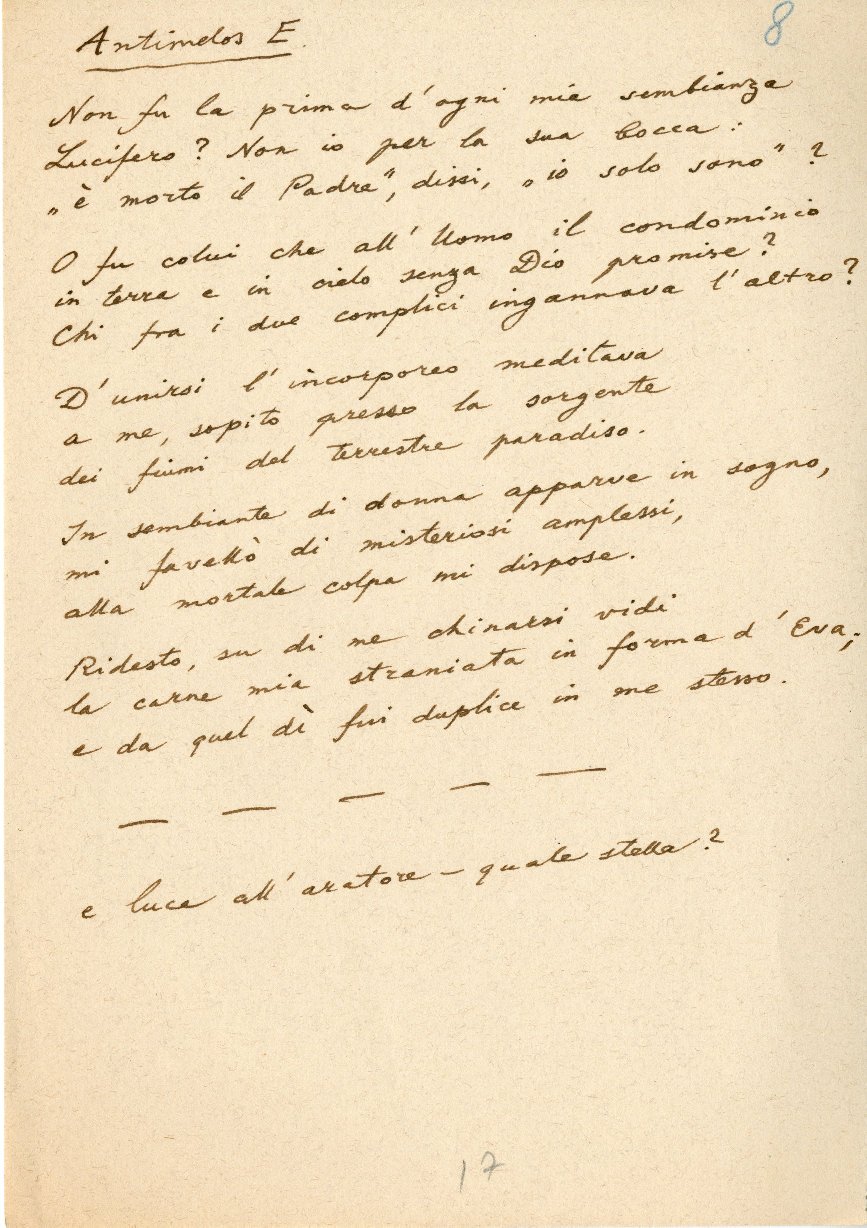 8
Antimelos E.
Non fu la prima d'ogni mia sembianza
Lucifero? Non io per la sua bocca:
„è morto il Padre", dissi, „io solo sono"?
O fu colui che all'Uomo il condominio
in terra e in cielo senza Dio promise?
Chi fra i due complici ingannava l'altro?
D'unirsi l'incorporeo meditava
a me, sopito presso la sorgente
dei fiumi del terrestre paradiso.
In sembiante di donna apparve in sogno,
mi favellò di misteriosi amplessi,
alla mortale colpa mi dispose.
Ridesto, su di me chinarsi vidi
la carne mia straniata in forma d'Eva;
e da quel dì fui duplice in me stesso.
— — — — —
e luce all'aratore – quale stella?
17